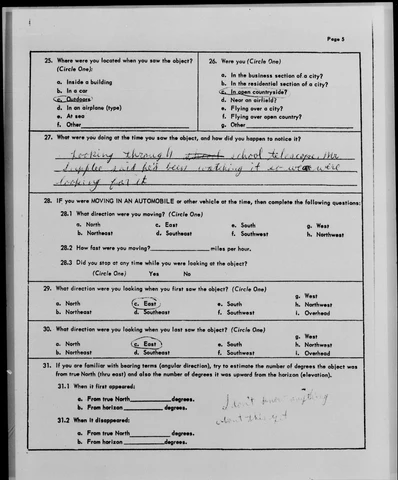 Page 3
25. Where were you located when you saw the object?
(Circle One):
a. Inside a building
b. In a car
c. Outdoors
d. In an airplane (type)
e. At sea
f. Other
26. Were you (Circle One)
a. In the business section of a city?
b. In the residential section of a city?
c. In open countryside?
d. Near an airfield?
e. Flying over a city?
f. Flying over open country?
g. Other
27. What were you doing at the time you saw the object, and how did you happen to notice it?
Looking through school telescope. Mr.
said he'd been watching it so we were
looking for it
28. IF you were MOVING IN AN AUTOMOBILE or other vehicle at the time, then complete the following questions:
28.1 What direction were you moving? (Circle One)
a. North c. East e. South g. West
b. Northeast d. Southeast f. Southwest h. Northwest
28.2 How fast were you moving? miles per hour.
28.3 Did you stop at any time while you were looking at the object?
(Circle One) Yes No
29. What direction were you looking when you first saw the object? (Circle One)
a. North c. East e. South g. West
b. Northeast d. Southeast f. Southwest h. Northwest
i. Overhead
30. What direction were you looking when you last saw the object? (Circle One)
a. North c. East e. South g. West
b. Northeast d. Southeast f. Southwest h. Northwest
i. Overhead
31. If you are familiar with bearing terms (angular direction), try to estimate the number of degrees the object was
from true North (thru east) and also the number of degrees it was upward from the horizon (elevation).
31.1 When it first appeared:
a. From true North degrees.
b. From horizon degrees.
31.2 When it disappeared:
a. From true North degrees.
b. From horizon degrees.
I don't know anything
about this yet